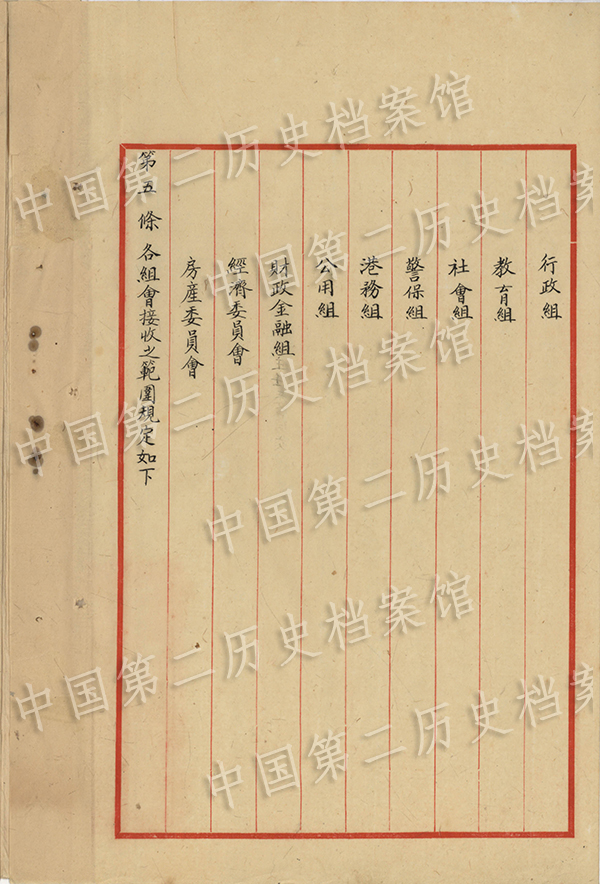 行政組
教育組
社會組
警保組
港務組
公用組
財政金融組
經濟委員會
房產委員會
第五條 各組會接收之範圍規定如下
中国第二历史档案馆
中国第二历史档案馆
中国第二历史档案馆
中国第二历史档案馆
中国第二历史档案馆
中国第二历史档案馆